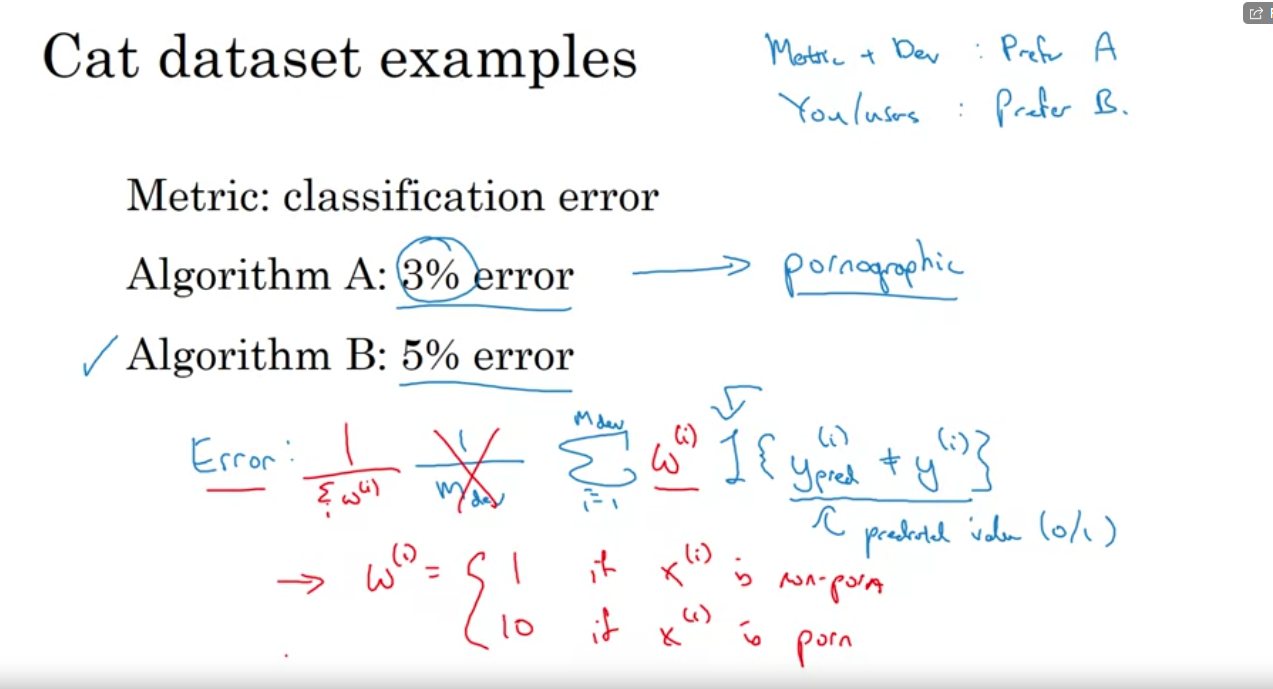 Cat dataset examples
Metric + Dev : Prefer A
You/users : Prefer B.
Metric: classification error
Algorithm A: 3% error → pornographic
✓ Algorithm B: 5% error
Error: 1/Σᵢ w⁽ⁱ⁾ 1/m_dev Σᵢ₌₁^(m_dev) w⁽ⁱ⁾ 1{y_pred⁽ⁱ⁾ ≠ y⁽ⁱ⁾}
predicted value (0/1)
→ w⁽ⁱ⁾ = { 1 if x⁽ⁱ⁾ is non-porn
10 if x⁽ⁱ⁾ is porn